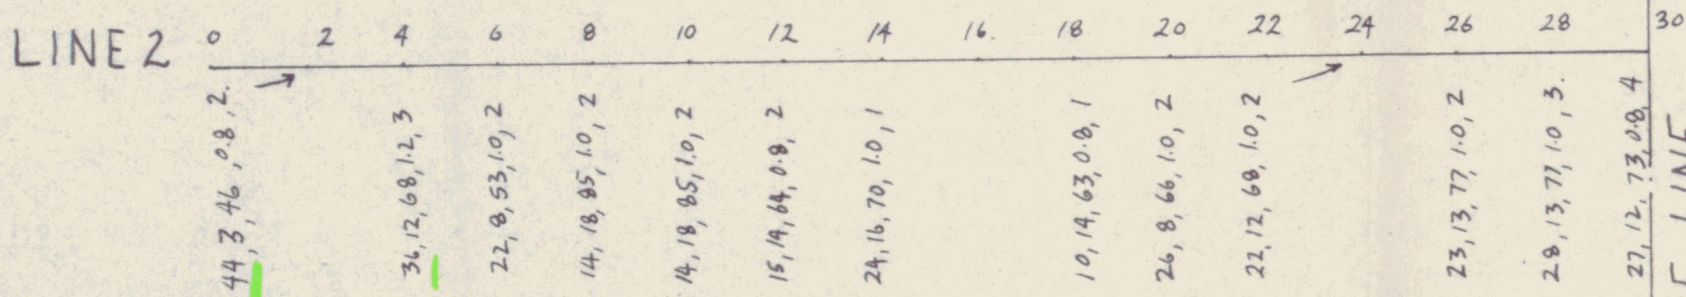 LINE 2 0 2 4 6 8 10 12 14 16. 18 20 22 24 26 28 30
44, 3, 46, 0.8, 2.
36, 12, 68, 1.2, 3
22, 8, 53, 1.0, 2
14, 18, 85, 1.0, 2
14, 18, 85, 1.0, 2
15, 14, 64, 0.8, 2
24, 16, 70, 1.0, 1
10, 14, 63, 0.8, 1
26, 8, 66, 1.0, 2
22, 12, 68, 1.0, 2
23, 13, 77, 1.0, 2
28, 13, 77, 1.0, 3.
27, 12, 73, 0.8, 4
LINE